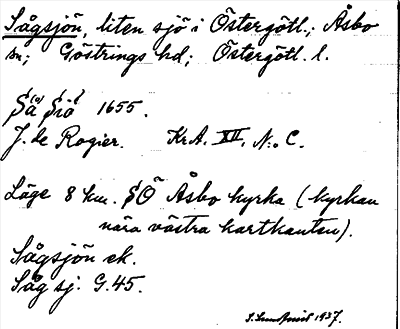 Sågsjön, liten sjö i Östergötl.; Åsbo
sn; Göstrings hd; Östergötl. l.
Så Siö 1655.
J. de Rogier. KrA. XII, N:o C.
Läge 8 km. SÖ Åsbo kyrka (kyrkan
nära västra kartkanten).
Sågsjön ek.
Sågsj. G.45.
1937.